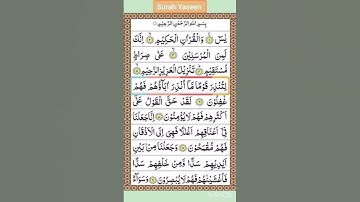 Surah Yaseen
بِسْمِ اللّٰهِ الرَّحْمٰنِ الرَّحِيْمِ
يٰسٓ ۚ وَالْقُرْاٰنِ الْحَكِيْمِ ۙ اِنَّكَ
لَمِنَ الْمُرْسَلِيْنَ ۙ عَلٰى صِرَاطٍ
مُّسْتَقِيْمٍ ؕ تَنْزِيْلَ الْعَزِيْزِ الرَّحِيْمِ ۙ
لِتُنْذِرَ قَوْمًا مَّاۤ اُنْذِرَ اٰبَآؤُهُمْ فَهُمْ
غٰفِلُوْنَ لَقَدْ حَقَّ الْقَوْلُ عَلٰۤى
اَكْثَرِهِمْ فَهُمْ لَا يُؤْمِنُوْنَ اِنَّا جَعَلْنَا
فِىْۤ اَعْنَاقِهِمْ اَغْلٰلًا فَهِىَ اِلَى الْاَذْقَانِ
فَهُمْ مُّقْمَحُوْنَ وَجَعَلْنَا مِنْۢ بَيْنِ
اَيْدِيْهِمْ سَدًّا وَّمِنْ خَلْفِهِمْ سَدًّا
فَاَغْشَيْنٰهُمْ فَهُمْ لَا يُبْصِرُوْنَ وَسَوَآءٌ